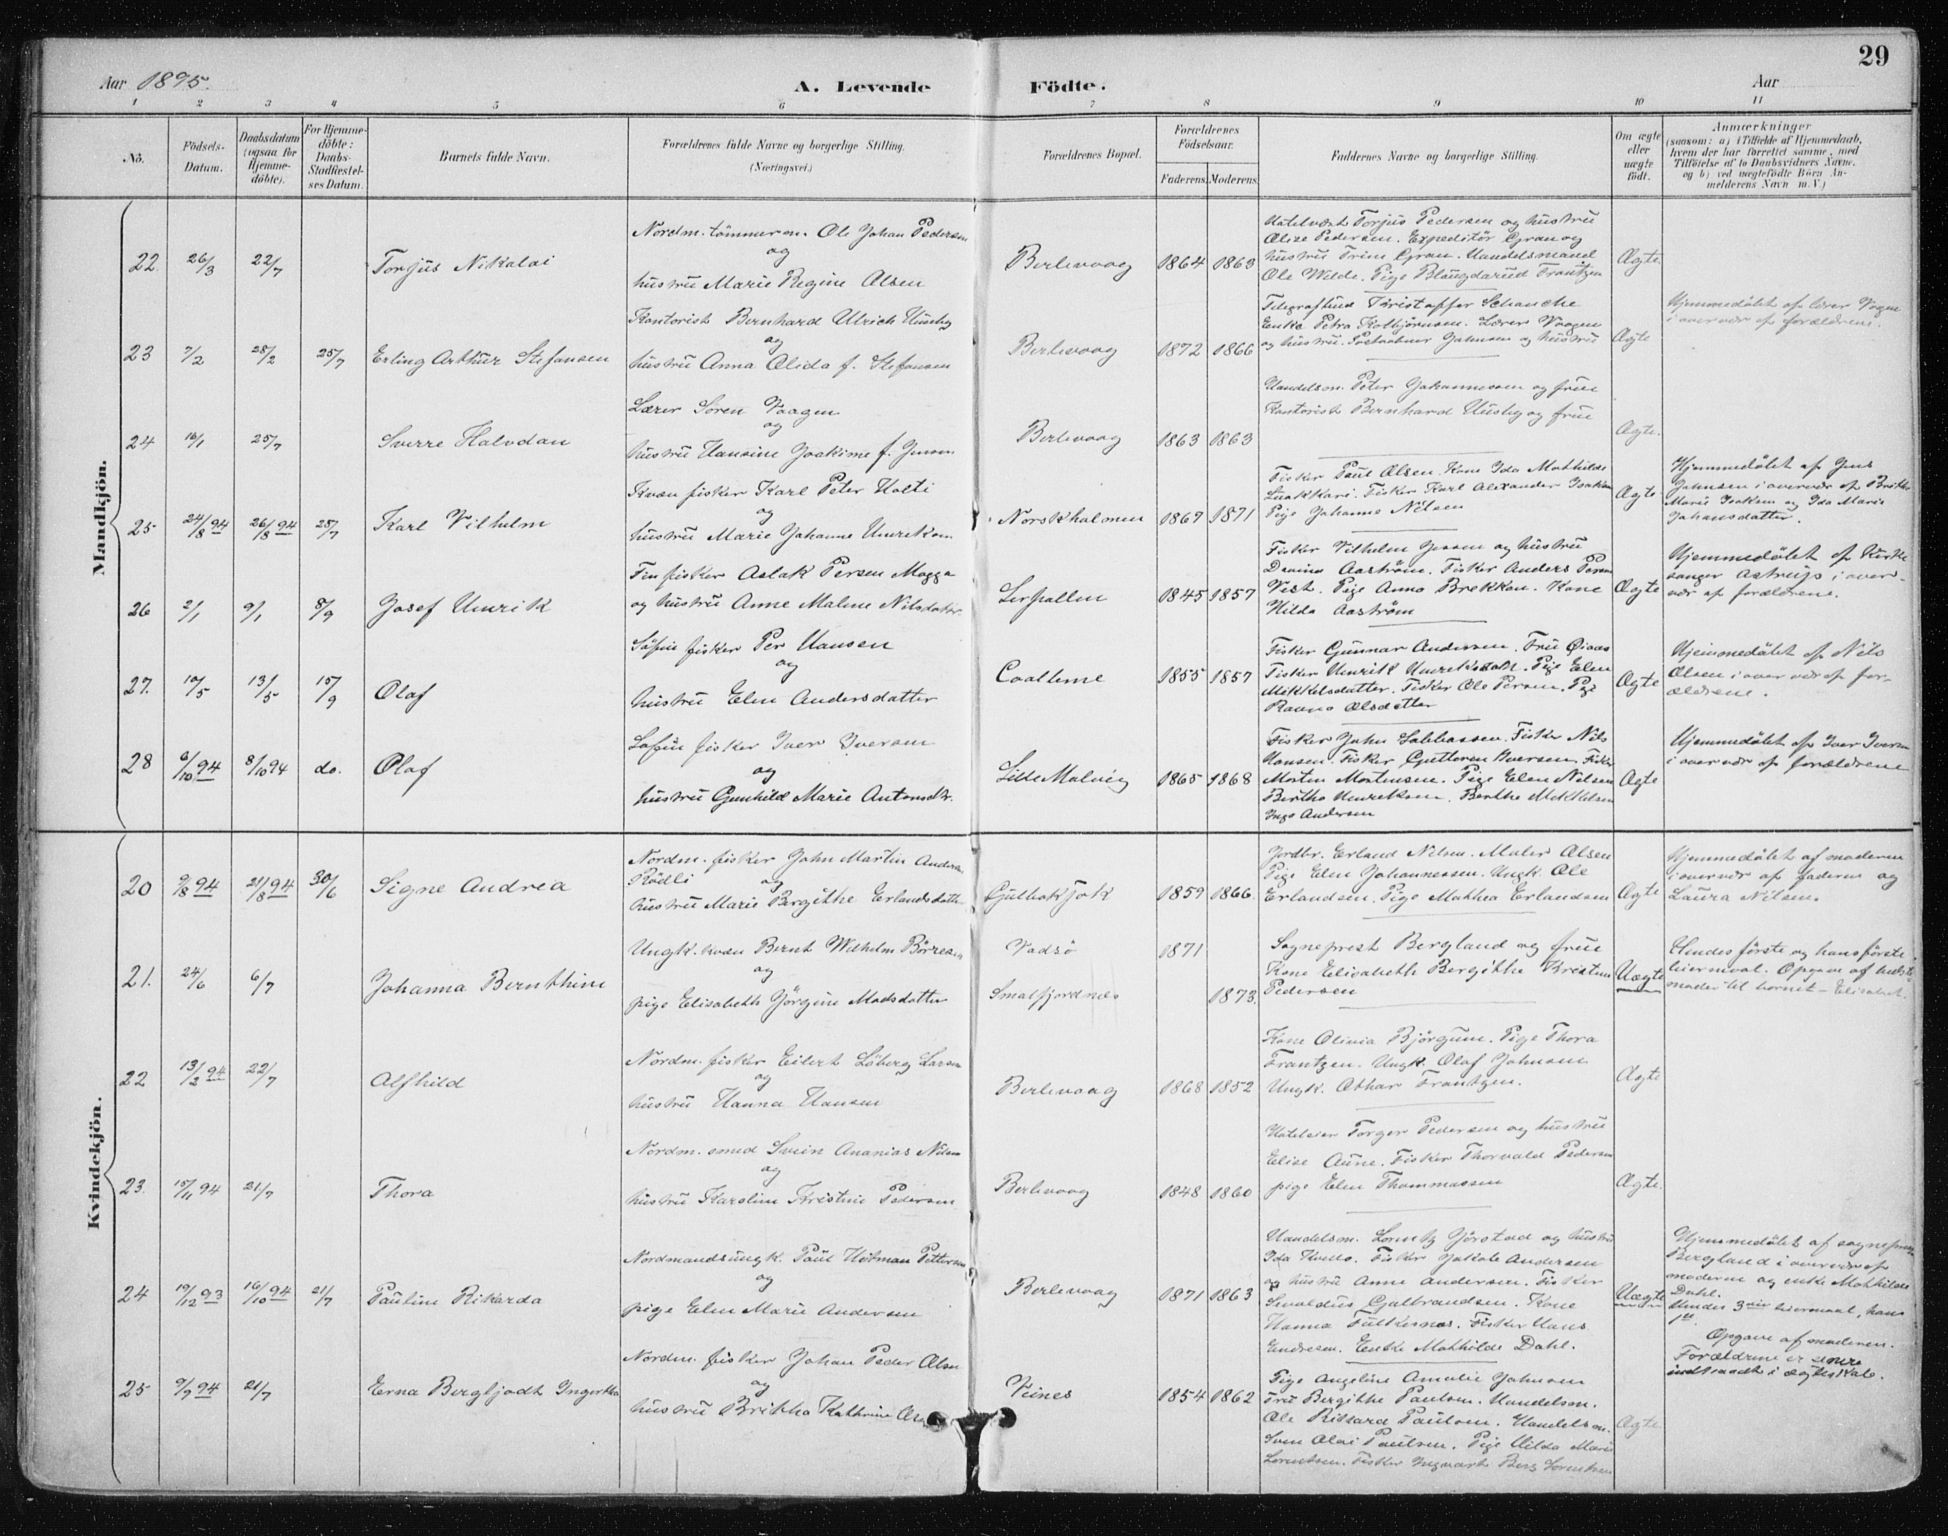 29
Aar 1895.
A. Levende Födte.
Aar
1 2 3 4 5 6 7 8 9 10 11
No.
Födsels-Datum.
Daabsdatum (ogsaa for Hjemme-döbte).
For Hjemme-döbte: Daabs-Stadfæstel-ses Datum.
Barnets fulde Navn.
Forældrenes fulde Navne og borgerlige Stilling.
(Næringsvei.)
Forældrenes Bopæl.
Forældrenes Födselsaar.
Faderens. Moderens.
Faddernes Navne og borgerlige Stilling.
Om ægte eller uægte födt.
Anmærkninger
(saasom: a) i Tilfælde af Hjemmedaab, hvem der har forrettet samme, med Tilföielse af to Daabsvidners Navne. og b) ved uægtefödte Börn Anmelderens Navn m. V.)
Mandkjön.
22 26/3 22/7 Torjus Nikolai
Nordm. tömmerm. Ole Johan Pedersen
og
hustru Marie Regine Olsen
Berlevaag 1864 1863
Torjus Pedersen og hustru
Elise Pedersen. Expeditör Gran og
hustru Trine Gran. Handelsmand
Ole Wilde. Pige Frantzen
Ægte
23 7/2 28/2 25/7 Erling Arthur Stefansen
Kontorist Bernhard Ulrich Husby
og
hustru Anna Olida f. Stefansen
Berlevaag 1872 1866
Kristoffer Schanche
Enke Petra Kolbjörnsen. Lærer Vaagen
og hustru. Postaabner Johnsen og hustru
Ægte
Hjemmedöbt af lærer Vagen
i overvær af forældrene.
24 16/1 25/7 Sverre Halvdan
Lærer Sören Vaagen
og
hustru Hansine Joakime f. Jensen
Berlevaag 1863 1863
Handelsm. Peter Johannessen og frue
Kontorist Bernhard Husby og frue
Ægte.
25 24/8 94 26/8 94 25/7 Karl Vilhelm
Kvæn fisker Karl Peter Holti
og
hustru Marie Johanne Henriksen
Norskholmen 1867 1871
Fisker Paul Olsen. Kone Ida Mathilde
Fisker Karl Alexander Joakim
Pige Johanne Nilsen
Ægte
Hjemmedöbt af Jens
Johnsen i overvær af Britha
Marie Joakim og Ida Marie
Johansdatter.
26 2/1 9/1 8/9 Josef Henrik
Fin fisker Aslak Persen Magga
og hustru Anne Malene Nilsdatter
1845 1857
Fisker Vilhelm Jessen og hustru
Davina Aaström. Fisker Anders Persen
Vest. Pige Anna Brekkan. Kone
Hilda Aaström
Ægte
Hjemmedöbt af Kirke
sanger Astrup i over-
vær af forældrene.
27. 10/5 13/5 15/9 Olaf
Söfin fisker Per Hansen
og
hustru Elen Andersdatter
1855 1857
Fisker Gunnar Andersen. Fru
Fisker Henrik Henriksen. Pige Elen
Mikkelsdatter. Fisker Ole Persen. Pige
Ravna Olsdatter
Ægte
Hjemmedöbt af Nils
Olsen i overvær af for-
ældrene.
28 6/10 94 8/10 94 do. Olaf
fisker Iver Iversen
og
hustru Gunhild Marie Antonsdtr.
Lille Molvig 1865 1868
Fisker John Fisker Nils
Hansen. Fisker Guttorm Iversen. Fisker
Morten Mortensen. Pige Elen Nilsen
Bertha Henriksen. Berthe Mikkelsen
Inga Andersen
Ægte
Hjemmedöbt af Iver Iversen
i overvær af forældrene
Kvindekjön.
20 9/8 94 21/8 94 30/6 Signe Andrea
Nordm. fisker John Martin Anders.
Rödli og
hustru Marie Bergithe Erlandsdatter
Gulholkjok 1859 1866
Jordbr. Erland Nilsen. Maler Olsen
Pige Elen Johannessen. Ungk. Ole
Erlandsen. Pige Mathea Erlandsen
Ægte
Hjemmedöbt af moderen
i overvær af faderen og
Laura Nilsen.
21. 24/6 6/7 Johanna Bernthine
Ungk. kvæn Bernt Wilhelm Börresen
og
pige Elisabeth Jörgine Madsdatter
Vadsö 1871
Smalfjordnæs 1873
Sogneprest Bergland og frue
Kone Elisabeth Bergithe Kristine
Pedersen
Uægte
Hendes förste og hans förste
leiermaal. Opgave af
moder til barnet - Elisabet.
22 13/2 94 22/7 Alfhild
Nordm. fisker Eilert Löberg Larsen
og
hustru Hanna Hansen
Berlevaag 1868 1852
Kone Olivia Björgum. Pige Thora
Frantzen. Ungk. Olaf Johnsen
Ungk. Othar Frantzen.
Ægte
23 15/11 94 21/7 Thora
Nordm. smed Svein Ananias Nilsen
og
hustru Karoline Kristine Pedersen
Berlevaag 1848 1860
Hoteleier Torger Pedersen og hustru
Elise Aune. Fisker Thorvald Pedersen
pige Elen Thommassen
Ægte.
24 19/12 93 16/10 94 21/7 Pauline Rikarda
Nordmandsungk. Paul Hofman Pettersen
og
pige Elen Marie Andersen
Berlevaag 1871 1863
Handelsm. Lorentz Jörstad og hustru
Ida Fisker Jakob Andersen
og hustru Anne Andersen. Fisker
Gulbrandsen. Kone
Hanna Fulkesnes. Fisker Hans
Endresen. Enke Mathilde Dahl.
Uægte
Hjemmedöbt af sogneprest
Bergland i overvær af
moderen og enke Mathilde
Dahl.
Hendes 3die leiermaal, hans
1ste.
Opgave af moderen.
Forældrene er senere
indtraadt i ægteskab.
25 9/7 94 21/7 Erna Bergljodt Ingertha
Nordm. fisker Johan Peder Olsen
og
hustru Britha Kathrine Olsen
Veines 1854 1862
Pige Angeline Amalie Johnsen
Fru Bergithe Paulsen. Handelsm.
Ole Rikard Paulsen. Handelsm.
Sven Olai Paulsen. Pige Hilda Marie
Lorentsen. Fisker Ingvart Berg Lorentsen
Ægte